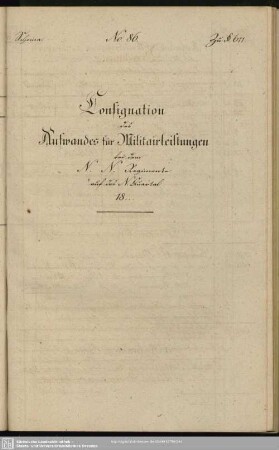 Schema No 86 Zu § 677.
Consignation
des
Aufwandes für Militairleistungen
bei dem
N. N. Regimente
auf das N. Quartal
18..